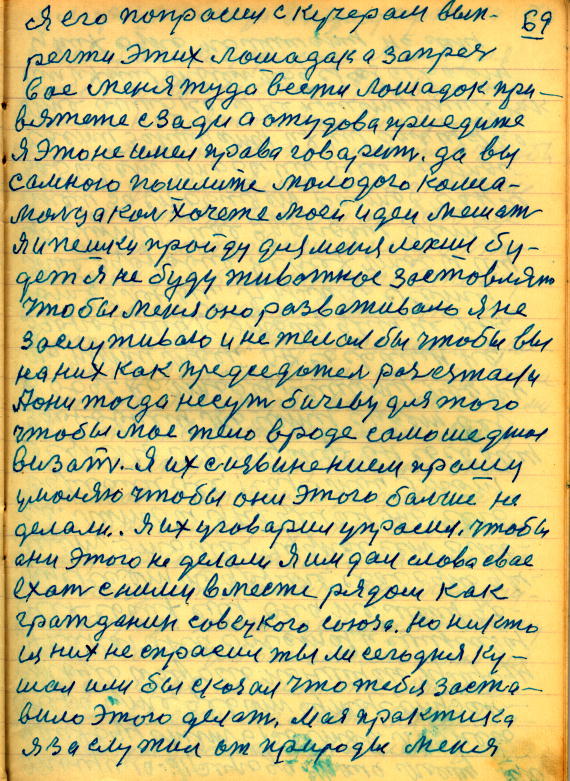 Я его попрасил с кучерам вып-
69
регти этих лошадак а запрег
вас меня туда вести лошадок при-
вяжете сзади а откудова приедите
я это не имел права говарить. да вы
самною пошлите молодого комса-
мольца кол хочете моей идеи мешат
я и пешки пройду для меня лехши бу-
дет я не буду животное застовлять
чтобы меня оно разваживало я не
заслуживаю и не желал бы чтобы вы
на них как председател разезжали
А они тогда несут бичеву для того
чтобы мое тело вроде самошедшои
визать. Я их с извинением прошу
умоляю чтобы они этого балше не
делали. Я их уговарил упрасил. чтобы
ани этого не делали Я им дал слова свае
ехат сними вместе рядом как
гражданин совецкого союза. но никто
из них не спрасил ты ли сегодня ку-
шал или бы скозал что тебя заста-
вило этого делат. Мая практика
я заслужил от природы меня